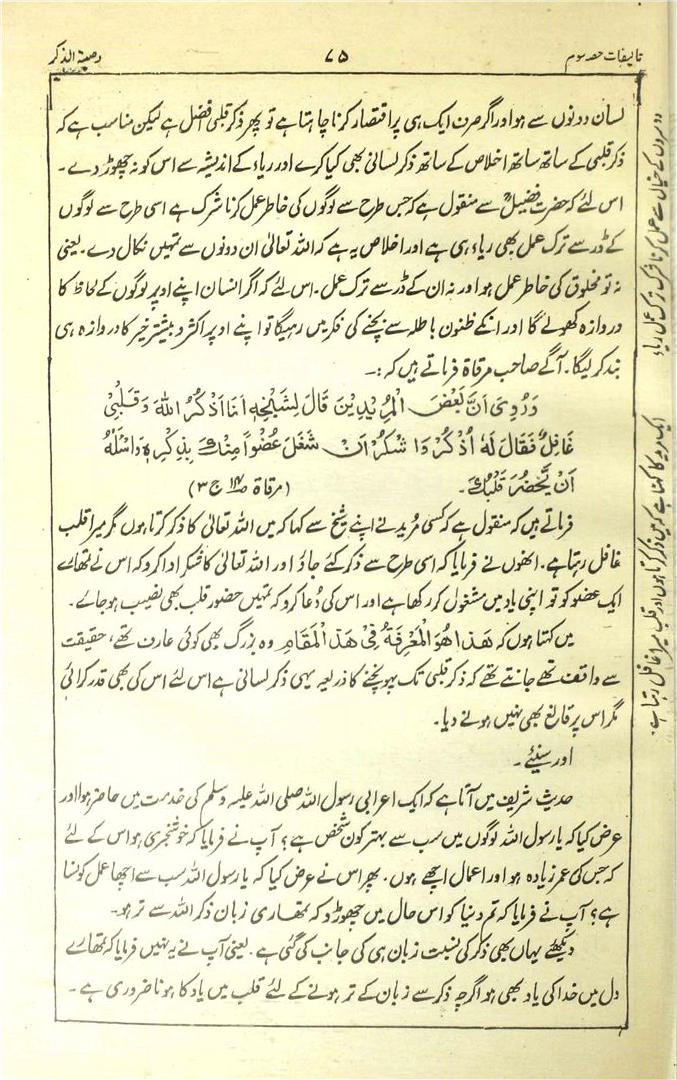 تالیفات حصہ سوم
۷۵
وصیۃ الذکر
لسان دونوں سے ہو اور اگر صرف ایک ہی پر اقتصار کرنا چاہتا ہے تو پھر ذکر قلبی افضل ہے لیکن مناسب ہے کہ
ذکر قلبی کے ساتھ ساتھ اخلاص کے ساتھ ذکر لسانی بھی کیا کرے اور ریاء کے اندیشہ سے اس کو نہ چھوڑ دے ۔
اس لئے کہ حضرت فضیلؒ سے منقول ہے کہ جس طرح سے لوگوں کی خاطر عمل کرنا شرک ہے اسی طرح سے لوگوں
کے ڈر سے ترک عمل بھی ریاء ہی ہے اور اخلاص یہ ہے کہ اللہ تعالیٰ ان دونوں سے تمہیں نکال دے ۔ یعنی
نہ تو مخلوق کی خاطر عمل ہو اور نہ ان کے ڈر سے ترک عمل ۔ اس لئے کہ اگر انسان اپنے اوپر لوگوں کے لحاظ کا
دروازہ کھولے گا اور انکے ظنون باطلہ سے بچنے کی فکر میں رہیگا تو اپنے اوپر اکثر و بیشتر خیر کا دروازہ ہی
بند کرلیگا ۔ آگے صاحب مرقاۃ فرماتے ہیں کہ :۔
وَرُوِیَ اَنَّ بَعْضَ الْمُرِیْدِیْنَ قَالَ لِشَیْخِہٖ اَنَا اَذْکُرُ اللہَ وَ قَلْبِیْ
غَافِلٌ فَقَالَ لَہٗ اُذْکُرْ وَا شْکُرْ اَنْ شَغَلَ عُضْواً مِنْكَ بِذِکْرِہٖ وَاسْئَلْہُ
اَنْ یَّحْضُرَ قَلْبُكَ ۔ (مرقاۃ ج۳)
فرماتے ہیں کہ منقول ہے کہ کسی مرید نے اپنے شیخ سے کہا کہ میں اللہ تعالیٰ کا ذکر کرتا ہوں مگر میرا قلب
غافل رہتا ہے ۔ انھوں نے فرمایا کہ اسی طرح سے ذکر کئے جاؤ اور اللہ تعالیٰ کا شکر ادا کرو کہ اس نے تمھارے
ایک عضو کو تو اپنی یاد میں مشغول کر رکھا ہے اور اس کی دُعا کرو کہ تمہیں حضور قلب بھی نصیب ہو جائے ۔
میں کہتا ہوں کہ ھَذا ھُوَ الْمَعْرِفَۃُ فِیْ ھَذَ الْمَقَامِ وہ بزرگ بھی کوئی عارف تھے ، حقیقت
سے واقف تھے جانتے تھے کہ ذکر قلبی تک پہونچنے کا ذریعہ یہی ذکر لسانی ہے اس لئے اس کی بھی قدر کرائی
مگر اس پر قانع بھی نہیں ہونے دیا ۔
اور سنیئے ۔
حدیث شریف میں آتا ہے کہ ایک اعرابی رسول اللہ صلی اللہ علیہ وسلم کی خدمت میں حاضر ہوا اور
عرض کیا کہ یا رسول اللہ لوگوں میں سب سے بہتر کون شخص ہے ؟ آپ نے فرمایا کہ خوشخبری ہو اس کے لئے
کہ جس کی عمر زیادہ ہو اور اعمال اچھے ہوں ۔ پھر اس نے عرض کیا کہ یا رسول اللہ سب سے اچھا عمل کونسا
ہے ؟ آپ نے فرمایا کہ تم دنیا کو اس حال میں چھوڑو کہ تمھاری زبان ذکر اللہ سے تر ہو ۔
دیکھئے یہاں بھی ذکر کی نسبت زبان ہی کی جانب کی گئی ہے ۔ یعنی آپ نے یہ نہیں فرمایا کہ تمھارے
دل میں خدا کی یاد بھی ہو اگرچہ ذکر سے زبان کے تر ہونے کے لئے قلب میں یاد کا ہونا ضروری ہے ۔
دوسروں کے خیال سے عمل کرنا شرک ترک عمل ریاء
ایک مرید کا کہنا ہے کہ میں ذکر کرتا ہوں اور قلب میرا غافل رہتا ہے ۔